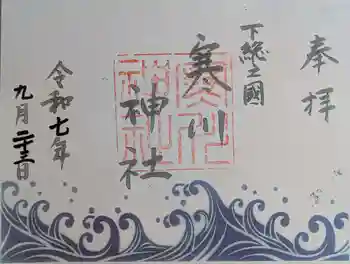 奉拝
下総之國
寒川神社
令和七年
九月二十三日